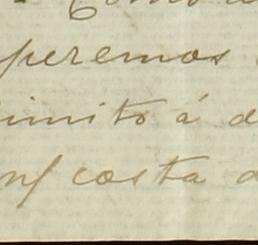 Como
peremos
imito á d
costa d